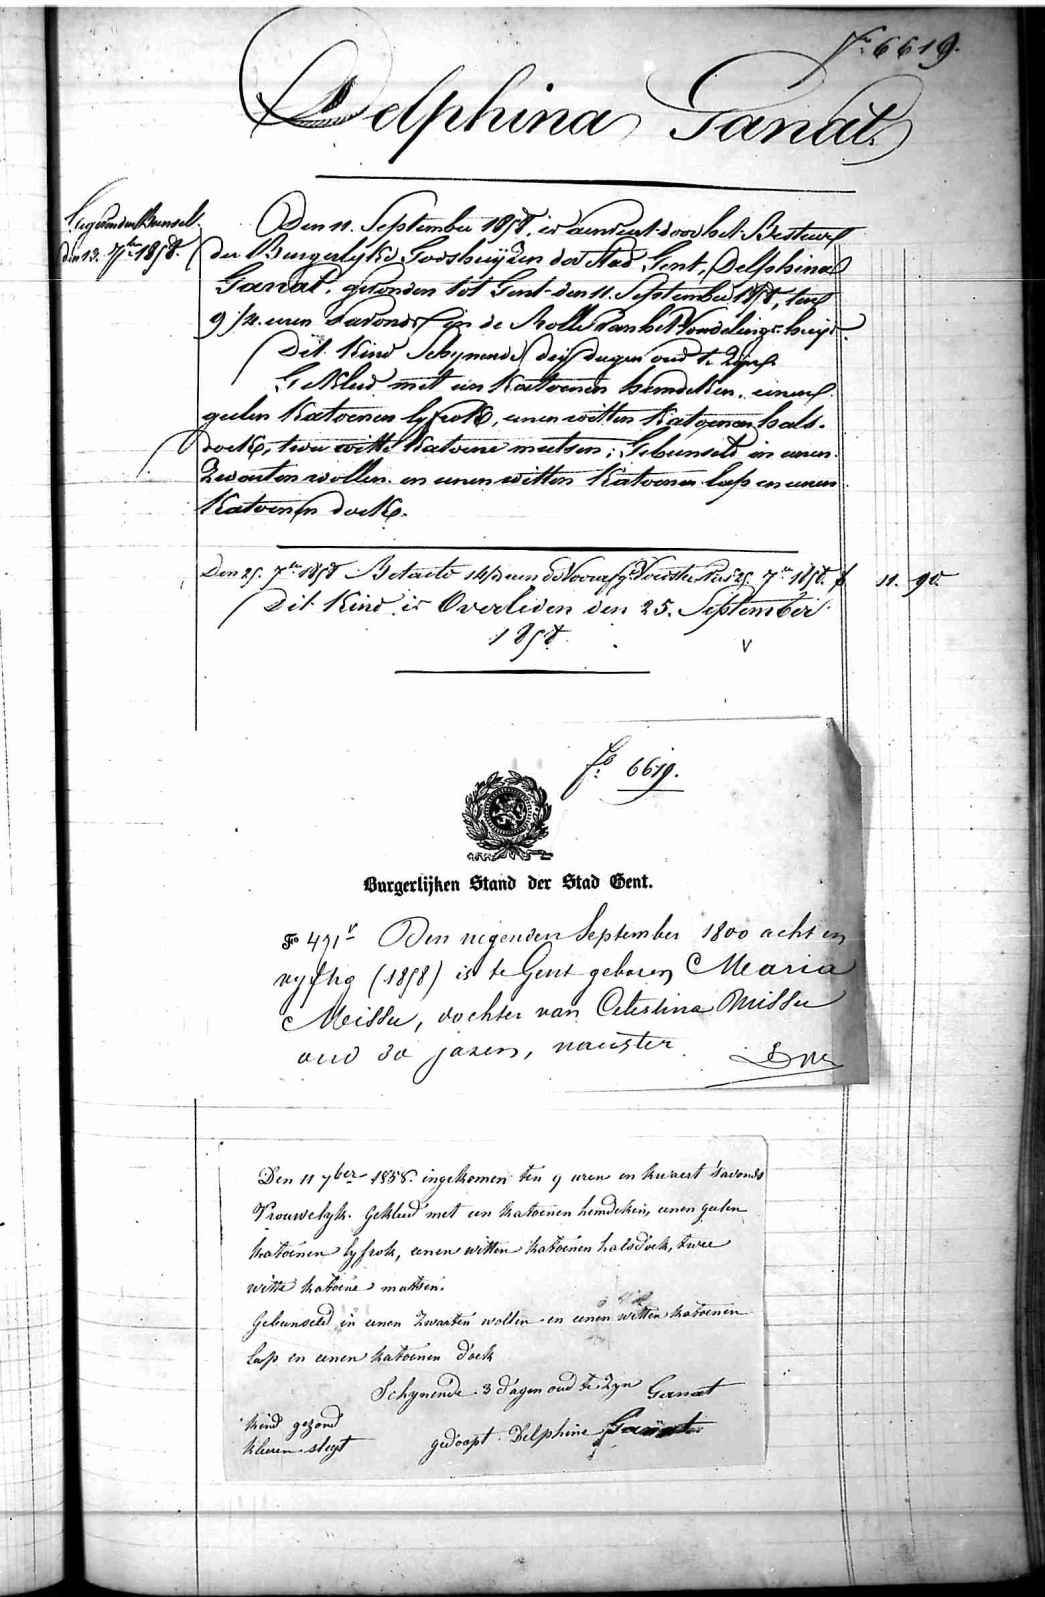 F.º 6619.
Delphina Ganat.
den 13. 7ber 1858.
Den 11. September 1858. is aenveert door het Bestuer
der Burgerlyke Godshuijzen der Stad Gent, Delphina
Ganat, gevonden tot Gent den 11. September 1858, ten
9 1/4 uren s'avonds in de Rolle van het Vondelings huijs.
Dit Kind Schynende drij dagen oud te Zijn.
Gekleed met een Katoenen hemdeken, eenen
geelen Katoenen lyfrok, eenen witten Katoenen hals-
doek, twee witte Katoene mutsen; Gebunseld in eenen
Zwarten wollen en eenen witten Katoenen lap en eenen
Katoenen doek.
Den 25. 7ber 1858 Betaeld 25 7ber 1858. f 11. 90
Dit Kind is Overleden den 25. September
1858.
V
fº. 6619.
Burgerlijken Stand der Stad Gent.
Fº 491v Den negenden September 1800 acht en
vyftig (1858) is te Gent geboren Maria
Missu, dochter van Celestina Missu
oud 30 jaren, naeister
Den 11 7ber 1858. ingekomen ten 9 uren en kwaert 's avonds
Vrouwelyk. Gekleed met een katoenen hemdeken, eenen geelen
katoenen lyfrok, eenen witten katoenen halsdoek, twee
witte katoene mutsen.
Gebunseld in eenen Zwarten wollen en eenen witten katoenen
lap en eenen katoenen doek
Schynende 3 dagen oud te Zyn Ganat
Kind gezond
kleeren slegt gedoopt Delphine Ganat